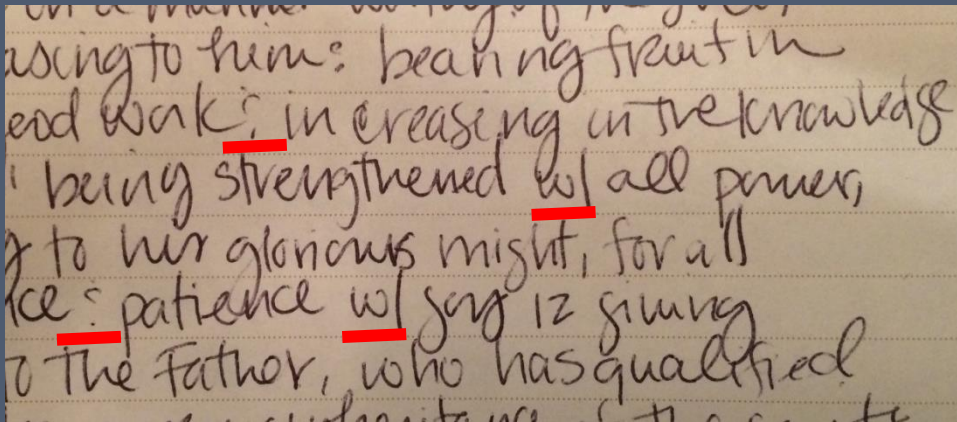 in a manner worthy of the
asing to him: bearing fruit in
ood work : increasing in the knowledge
being strengthened w/ all power,
g to his glorious might, for all
ce : patience w/ joy 12 giving
to the Father, who has qualified
inheritance of the saints